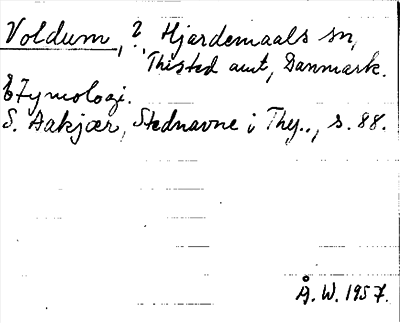 Voldum, ?, Hjardemaals sn,
Thisted amt, Danmark.
Etymologi.
S. Aakjær, Stednavne i Thy.., s. 88.
Å. W. 1957.